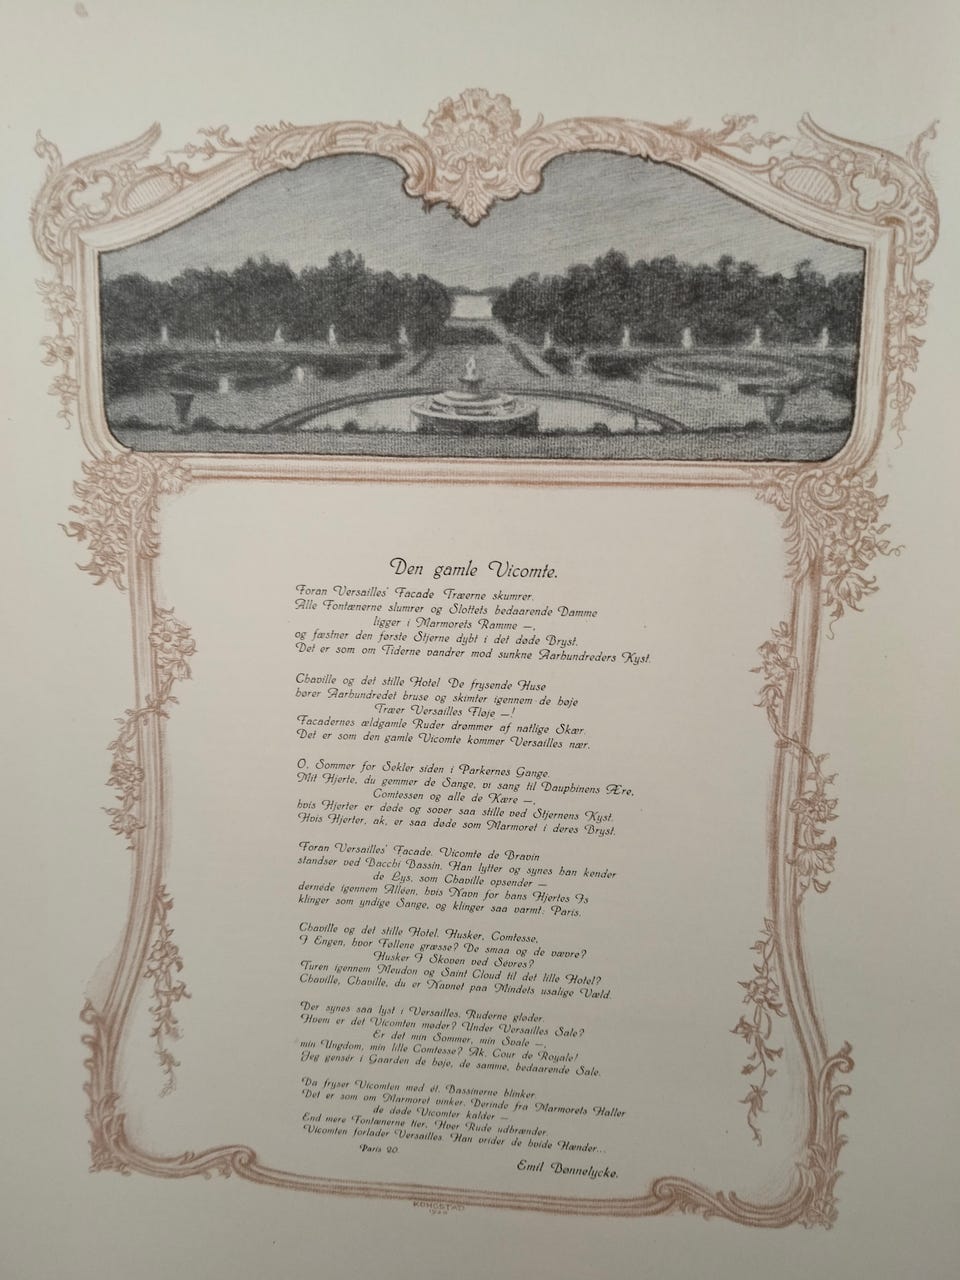 Den gamle Vicomte.
Foran Versailles' Facade Træerne skumrer.
Alle Fontænerne slumrer og Slottets bedaarende Damme
ligger i Marmorets Ramme —,
og fæstner den første Stjerne dybt i det døde Bryst.
Det er som om Tiderne vandrer mod sunkne Aarhundreders Kyst.
Chaville og det stille Hotel De frysende Huse
hører Aarhundredet bruse og skimter igennem de høje
Træer Versailles Fløje —!
Facadernes ældgamle Ruder drømmer af natlige Skær.
Det er som den gamle Vicomte kommer Versailles nær.
O, Sommer for Sekler siden i Parkernes Gange.
Mit Hjerte, du gemmer de Sange, vi sang til Dauphinens Ære,
Comtessen og alle de Kære —,
hvis Hjerter er døde og sover saa stille ved Stjernens Kyst.
Hvis Hjerter, ak, er saa døde som Marmoret i deres Bryst.
Foran Versailles' Facade. Vicomte de Bravin
standser ved Bacchi Bassin. Han lytter og synes han kender
de Lys, som Chaville opsender —
dernede igennem Alléen, hvis Navn for hans Hjertes Is
klinger som yndige Sange, og klinger saa varmt: Paris.
Chaville og det stille Hotel. Husker, Comtesse,
I Engen, hvor Føllene græsse? De smaa og de vævre?
Husker I Skoven ved Sèvres?
Turen igennem Meudon og Saint Cloud til det lille Hotel?
Chaville, Chaville, du er Navnet paa Mindets usalige Væld.
Der synes saa lyst i Versailles. Ruderne gløder.
Hvem er det Vicomten møder? Under Versailles Sale?
Er det min Sommer, min Svale —,
min Ungdom, min lille Comtesse? Ak, Cour de Royale!
Jeg gensér i Gaarden de høje, de samme, bedaarende Sale.
Da fryser Vicomten med ét. Bassinerne blinker.
Det er som om Marmoret vinker. Derinde fra Marmorets Haller
de døde Vicomter kalder —
End mere Fontænerne tier. Hver Rude udbrænder.
Vicomten forlader Versailles. Han vrider de hvide Hænder...
Paris 20.
Emil Bønnelycke.
KONGSTAD
1920